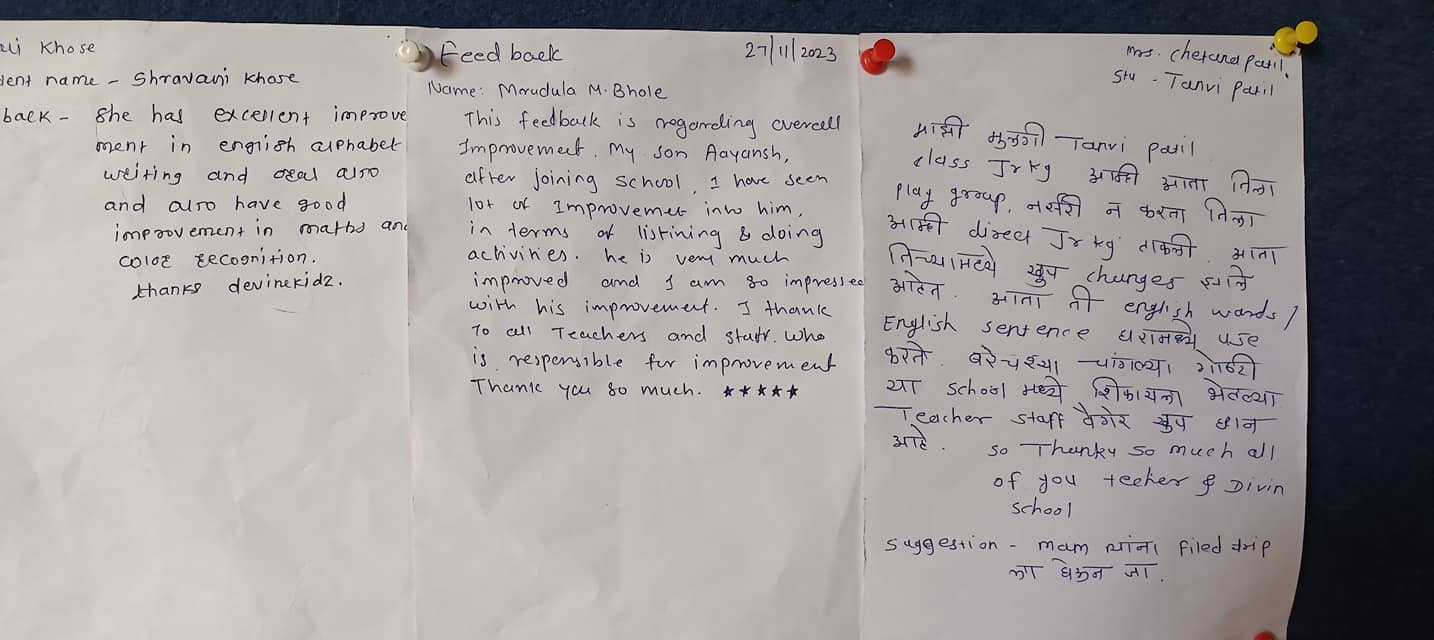 Khose
dent name - Shravani Khose
back - She has excellent improve
ment in english alphabet
writing and oral also
and also have good
improvement in maths and
color recognition.
thanks devinekidz.
Feedback 27/11/2023
Name: Mrudula M. Bhole
This feedback is regarding overall
Improvement. My son Aayansh,
after joining school, I have seen
lot of Improvemet into him,
in terms of listining & doing
activities. he is very much
improved and I am so impressed
with his improvement. I thank
To all Teachers and staff. who
is responsible for improvement
Thank you so much. ★★★★★
Mrs. Chetana Patil.
Stu - Tanvi Patil
माझी मुलगी Tanvi Patil
class Jr kg आम्ही आता तिला
Play group, नर्सरी न करता तिला
आम्ही direct Jr kg टाकली. आता
तिच्यामध्ये खुप changes झाले
आहेत. आता ती english words /
English sentence घरामध्ये use
करते. बरेचश्या चांगल्या गोष्टी
या school मध्ये शिकायला भेटल्या.
Teacher staff वैगेर खुप छान
आहे. so Thanky so much all
of you teeher & Divin
school
Suggestion - mam त्यांना filed trip
ला घेऊन जा.